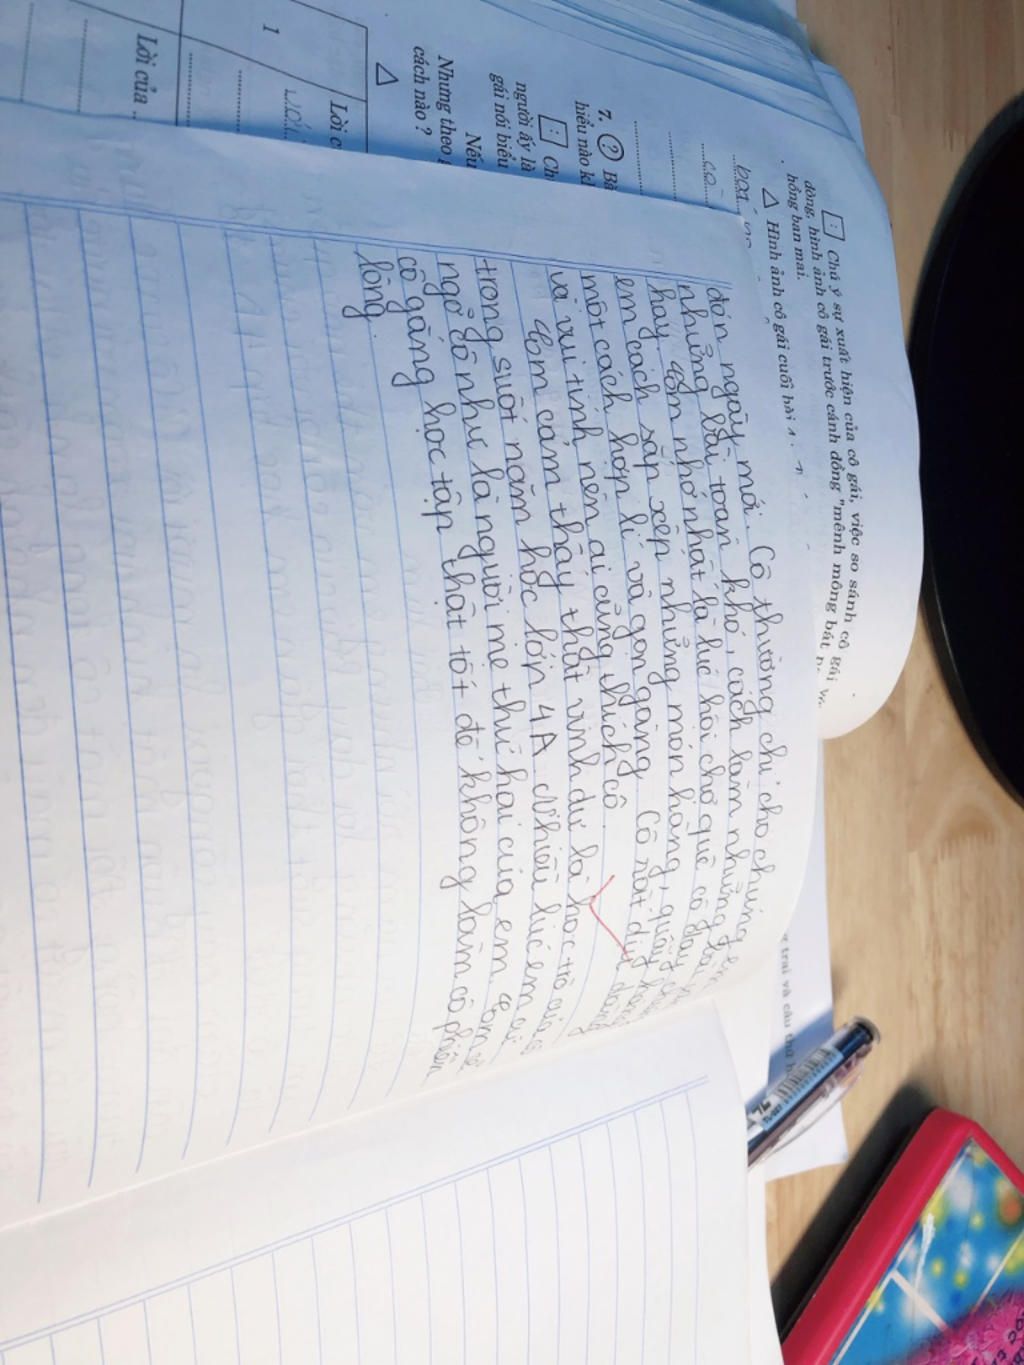 : Chú ý sự xuất hiện của cô gái, việc so sánh cô gái
đồng, hình ảnh cô gái trước cánh đồng "mênh mông bát
hồng ban mai.
△ Hình ảnh cô gái cuối bài
bài
cô
7. ?
hiểu nào
: Ch
người ấy là
gái nói hiểu
Nếu
Nhưng theo
cách nào ?
△
Lời c
1
Lời của
trai và câu thứ
đón ngày mới. Cô thường chỉ cho chúng em
những bài toán khó, cách làm những
hay. Em nhớ nhất là lúc hội chợ quê cô dạy
em cách sắp xếp những món hàng, quầy
một cách hợp lí và gọn gàng. Cô rất dịu dàng
và vui tính nên ai cũng thích cô.
Em cảm thấy thật vinh dự là học trò của cô
trong suốt năm học lớp 4A. Nhiều lúc em cứ
ngỡ cô như là người mẹ thứ hai của em. Em sẽ
cố gắng học tập thật tốt để không làm cô phiền
lòng.